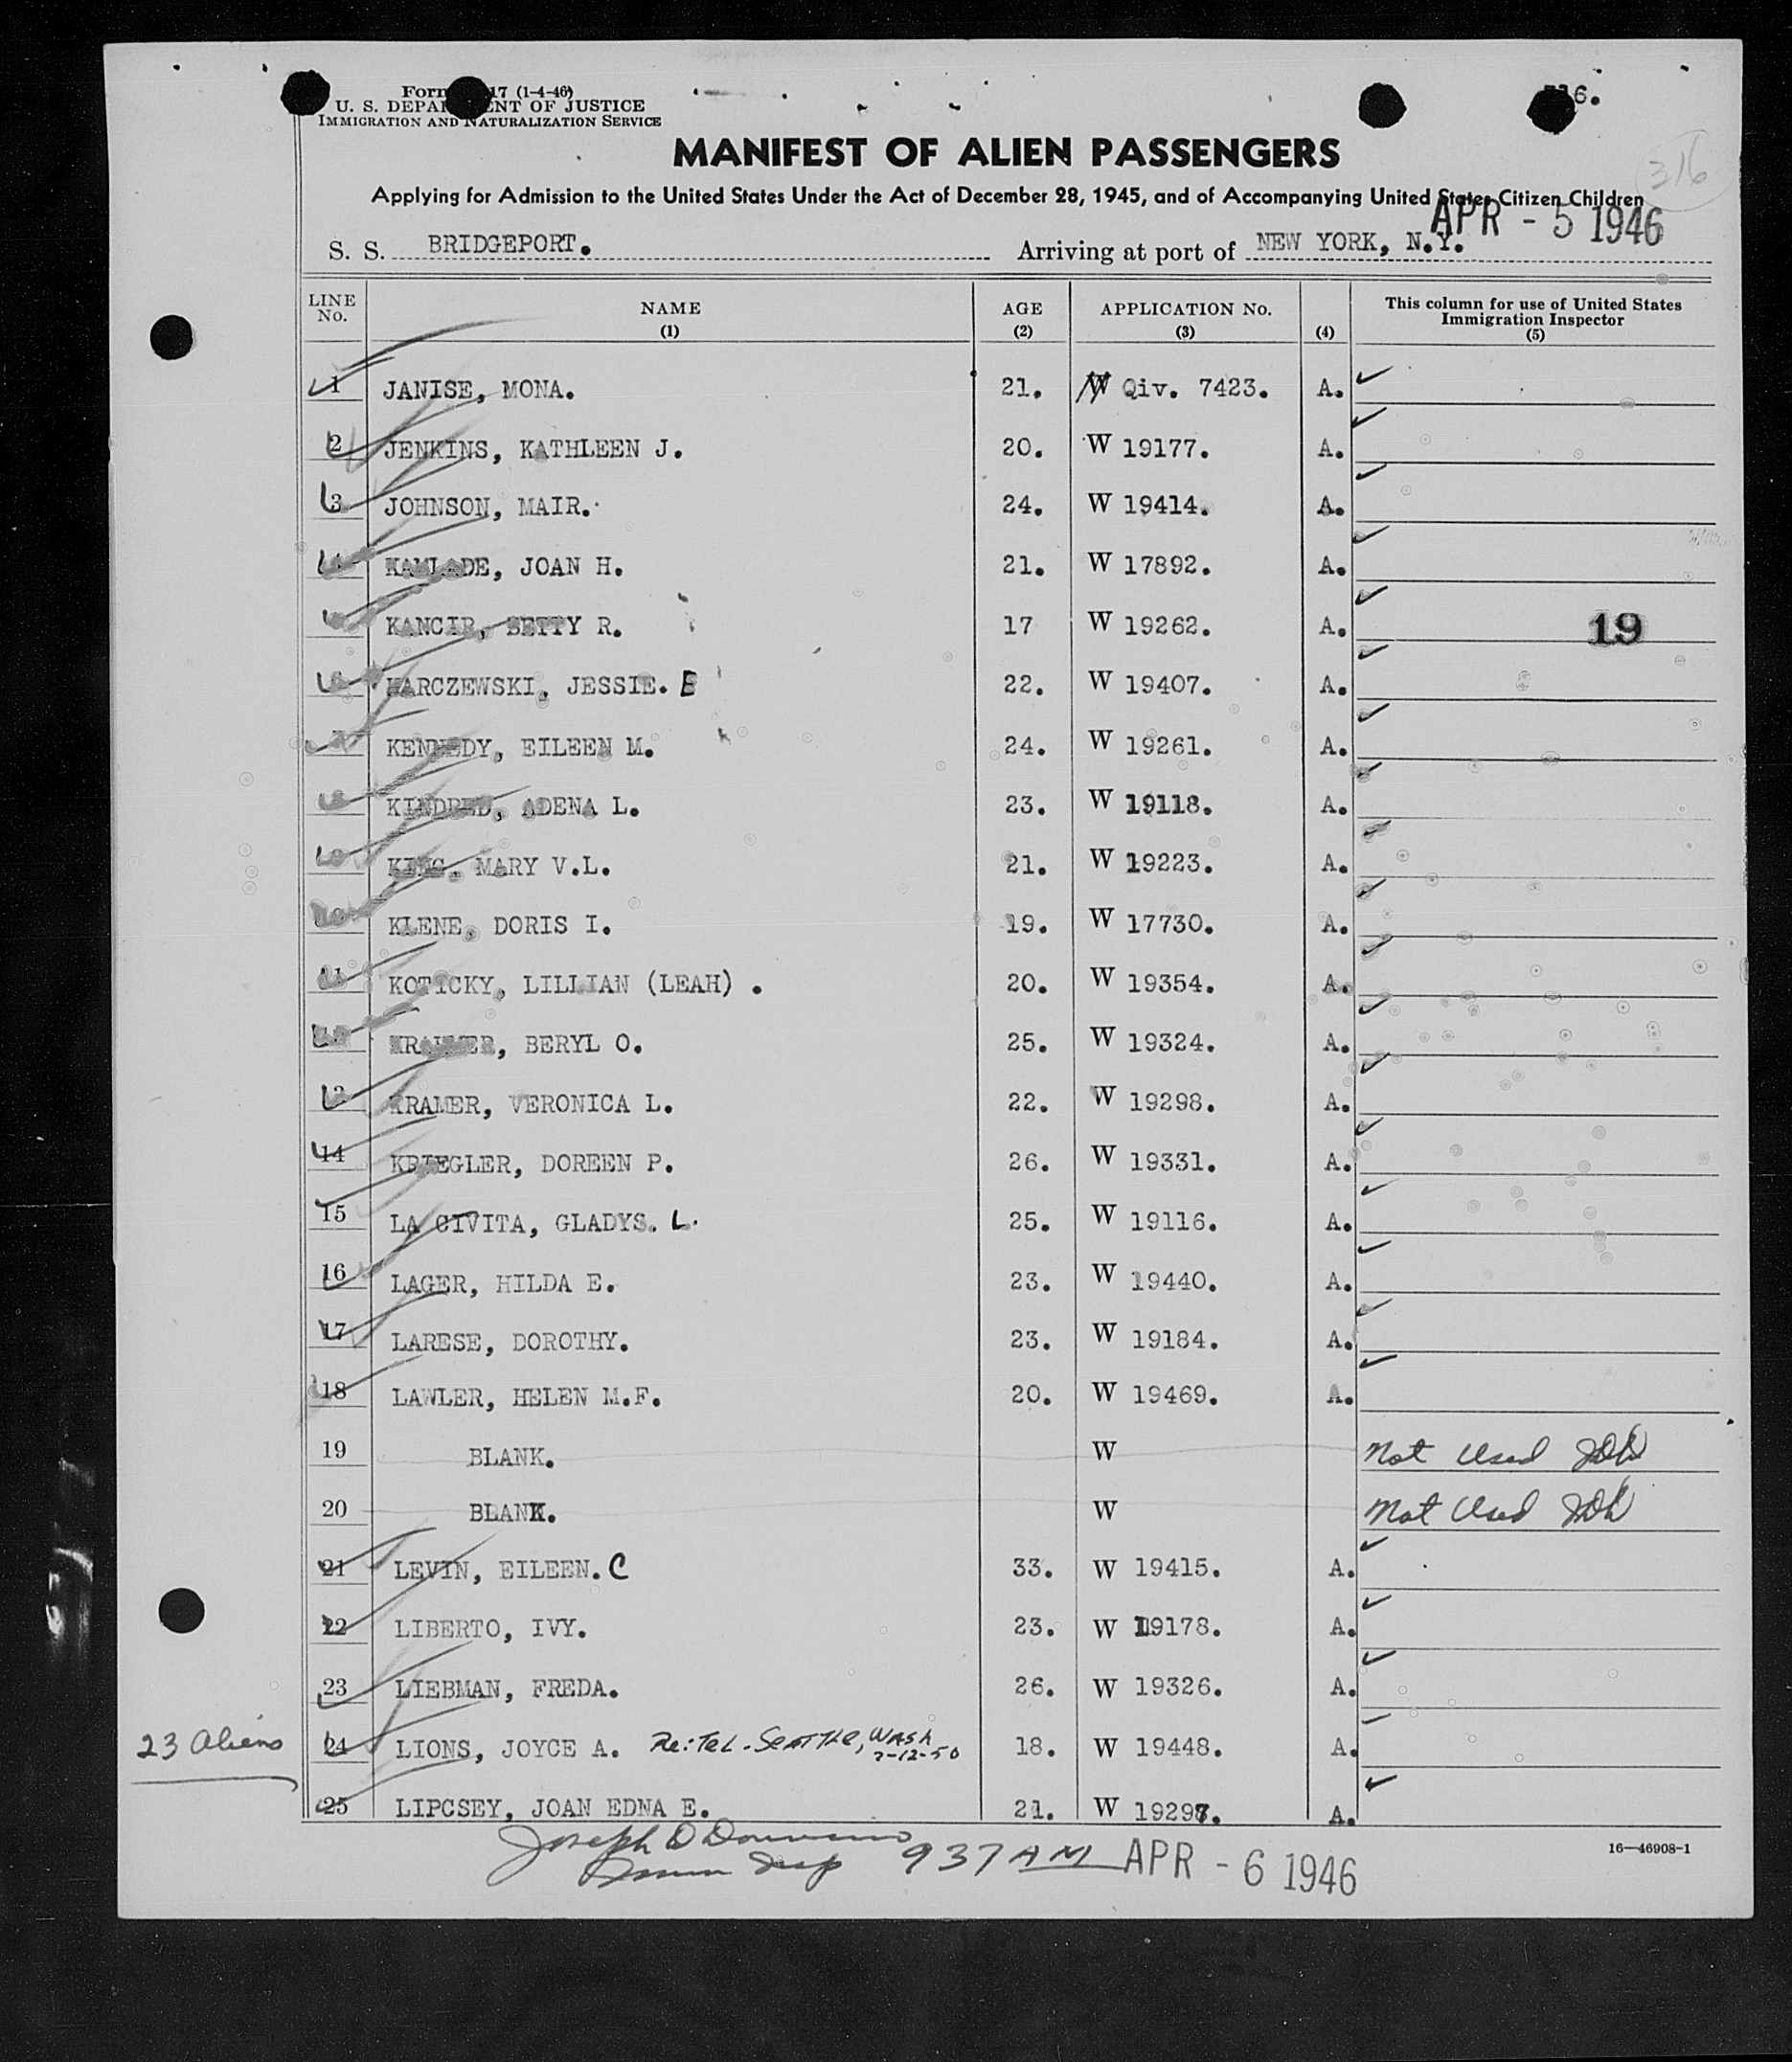 Form 17 (1-4-46)
U. S. DEPARTMENT OF JUSTICE
IMMIGRATION AND NATURALIZATION SERVICE
316
MANIFEST OF ALIEN PASSENGERS
Applying for Admission to the United States Under the Act of December 28, 1945, and of Accompanying United States Citizen Children
APR - 5 1946
S. S. BRIDGEPORT. Arriving at port of NEW YORK, N.Y.
LINE No. NAME (1) AGE (2) APPLICATION No. (3) (4) This column for use of United States Immigration Inspector (5)
1 JANISE, MONA. 21. W Qiv. 7423. A.
2 JENKINS, KATHLEEN J. 20. W 19177. A.
3 JOHNSON, MAIR. 24. W 19414. A.
4 KAMLADE, JOAN H. 21. W 17892. A.
KANCIR, BETTY R. 17 W 19262. A.
19
6 JESSIE. E 22. W 19407. A.
7 KENNEDY, EILEEN M. 24. W 19261. A.
8 KINDRED, ADENA L. 23. W 19118. A.
9 KING, MARY V.L. 21. W 19223. A.
10 KLENE, DORIS I. 19. W 17730. A.
11 KOTICKY, LILLIAN (LEAH) . 20. W 19354. A.
BERYL O. 25. W 19324. A.
13 KRAMER, VERONICA L. 22. W 19298. A.
14 KRIEGLER, DOREEN P. 26. W 19331. A.
15 LA CIVITA, GLADYS. L. 25. W 19116. A.
16 LAGER, HILDA E. 23. W 19440. A.
17 LARESE, DOROTHY. 23. W 19184. A.
18 LAWLER, HELEN M.F. 20. W 19469. A.
19 BLANK. W Not Used JDD
20 BLANK. W Not Used JDD
21 LEVIN, EILEEN. C 33. W 19415. A.
22 LIBERTO, IVY. 23. W 19178. A.
23 LIEBMAN, FREDA. 26. W 19326. A.
23 aliens
24 LIONS, JOYCE A. Re: Tel. - SEATTLE, WASH 18. W 19448. A.
25 LIPCSEY, JOAN EDNA E. 21. W 19297. A.
Joseph D
Immn Insp 937 AM APR - 6 1946
16—46908-1